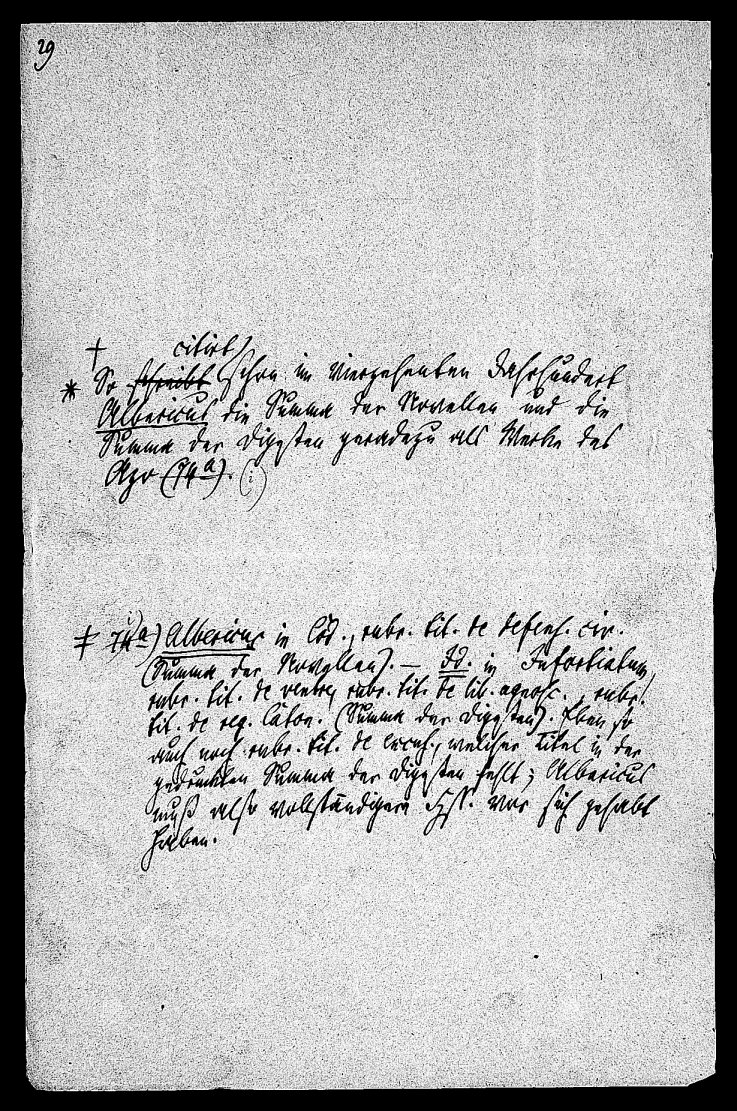 29
† citirt
* So schreibt schon im vierzehenten Jahrhundert
Albericus die Summa der Novellen und die
Summa der Digesten geradezu als Werke des
Azo (74a).
‡ 74a) Albericus in Cod., rubr. tit. de defens. civ.
(Summa der Novellen). — Id. in Infortiatum,
rubr. tit. de ventre, rubr. tit. de lib. agnosc., rubr.
tit. de reg. Caton. (Summa der Digesten). Eben so
auch noch rubr. tit. de, welcher Titel in der
gedruckten Summa der Digesten fehlt; Albericus
muß also vollständigere Hss. vor sich gehabt
haben.